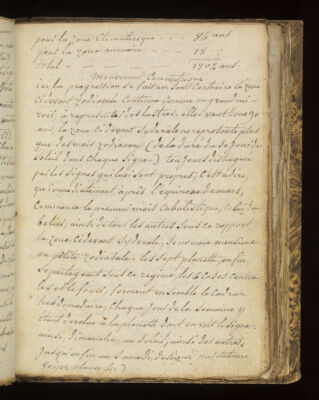 pour la zone Climaterique - - - 84 ans
pour la zone annuaire - - - 18 - -
total - - - - - 1902 ans.
Mouvement Consertique
ici la progression se fait en sens Contraire la zone
Cidevant Zodiacale Contenue Comme on vient
a representer des lustres. elle vaut donc 90
ans, la zone Cidevant Syderale ne represente plus
que des mois zodiacaux (de la durée du Sejour du
Soleil dans Chaque Signe.) toujours distingués
par les Signes qui leur sont propres; C'est à dire,
qu'immediatement après l'équinoxe de mars,
Commence le premier mois Cabalistique, Celui du
belier, ainsi de tous les autres Sous ce rapport
la zone Cidevant Syderale, Se nomme menstrue
ou petite zodiacale. les Sept planettes, enfin
Se partageant Sous ce regime, les 6 Cases centra
les et le forment ensemble le Cadran
hebdomadaire, Chaque Jour de la Semaine y
étant devolue à la planette dont on voit le Signe.
ainsi, dimanche, au Soleil, ainsi des autres
Jusqu'enfin au Samedi, designé par Saturne
voyez planche 4.)